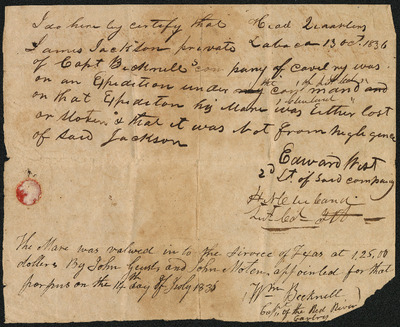 I do hereby certify that
Head Quarters
James Jackson private
Labaca 13 Oct. 1836
of Capt Becknell's company of cavelry was
on an Expedition under command and
on that Expedition his Mare was Either lost
or Stolen & that it was Not from Neglegence
of Said Jackson
Edward West
2d Lt. of Said company
Lut Col
The Mare was valued in to the Sirvice of Texas at 125,00
dollars By John and John appointed for that
porpus on the 14 day of July 1836
Wm Becknell
Capt. of the Red River